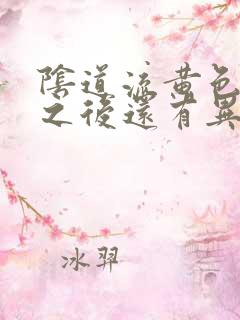 陰道流黃色
之後還有異
冰羿